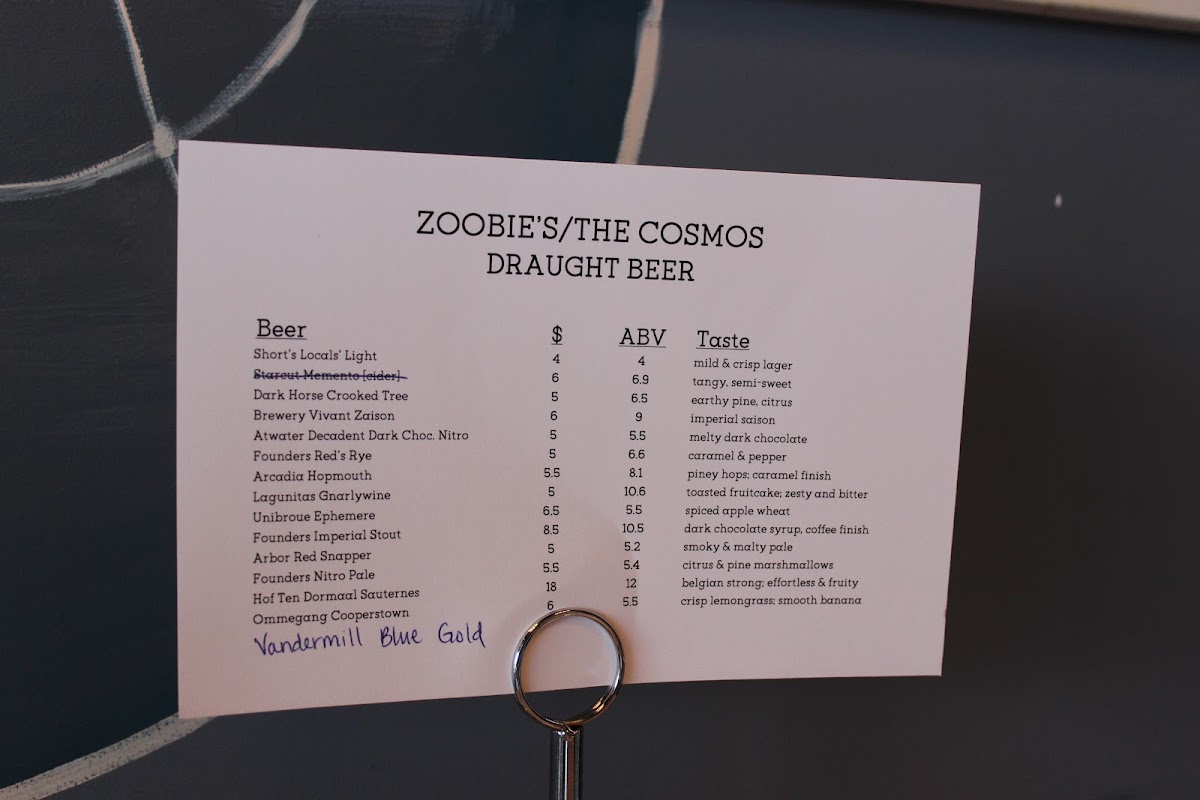 ZOOBIE'S/THE COSMOS
DRAUGHT BEER
Beer $ ABV Taste
Short's Locals' Light 4 4 mild & crisp lager
Starcut Memento [cider] 6 6.9 tangy, semi-sweet
Dark Horse Crooked Tree 5 6.5 earthy pine, citrus
Brewery Vivant Zaison 6 9 imperial saison
Atwater Decadent Dark Choc. Nitro 5 5.5 melty dark chocolate
Founders Red's Rye 5 6.6 caramel & pepper
Arcadia Hopmouth 5.5 8.1 piney hops; caramel finish
Lagunitas Gnarlywine 5 10.6 toasted fruitcake; zesty and bitter
Unibroue Ephemere 6.5 5.5 spiced apple wheat
Founders Imperial Stout 8.5 10.5 dark chocolate syrup, coffee finish
Arbor Red Snapper 5 5.2 smoky & malty pale
Founders Nitro Pale 5.5 5.4 citrus & pine marshmallows
Hof Ten Dormaal Sauternes 18 12 belgian strong; effortless & fruity
Ommegang Cooperstown 6 5.5 crisp lemongrass; smooth banana
Vandermill Blue Gold